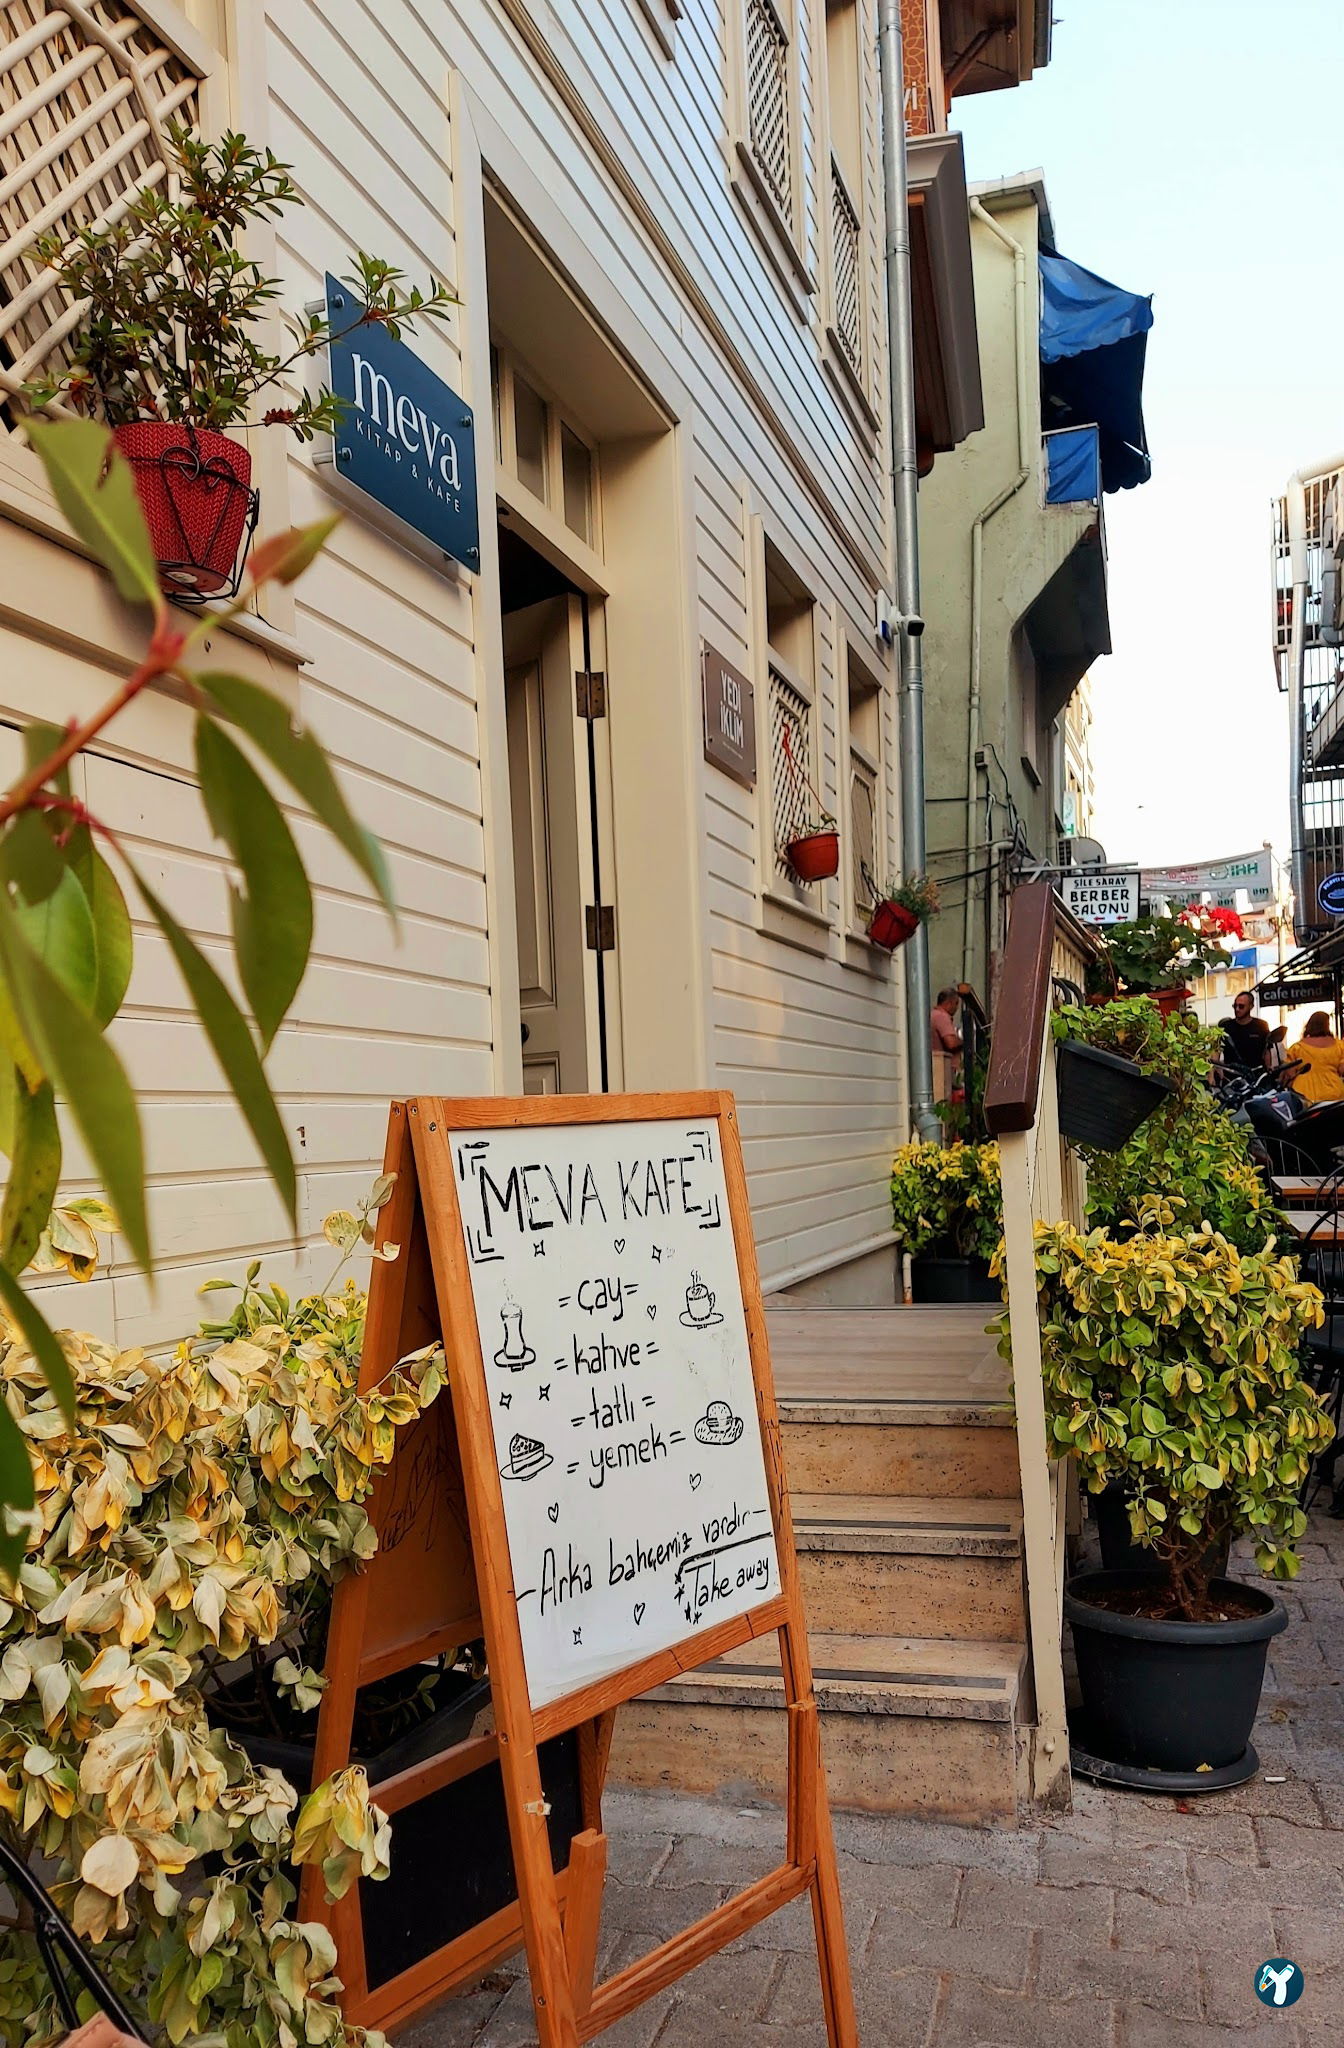 meva
KİTAP & KAFE
YEDİ
İKLİM
ŞİLE SARAY
BERBER
SALONU
İHH
cafe trend
MEVA KAFE
= Çay =
= kahve =
= tatlı =
= yemek =
- Arka bahçemiz vardır -
Take away